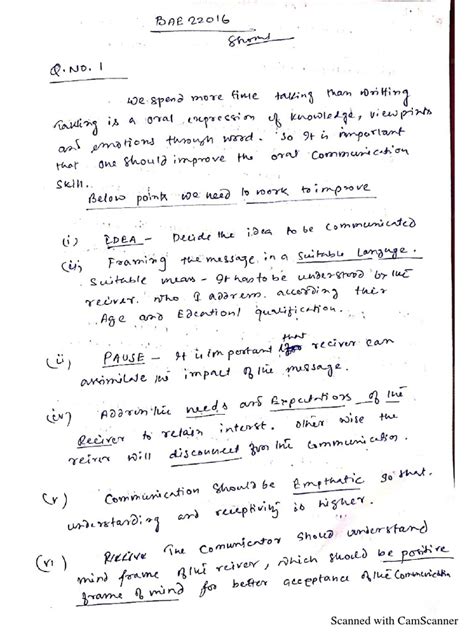 BAE 22016
Q.NO. 1
We spend more time talking than writing
Talking is a oral expression of knowledge, view points
and emotions through word. So It is important
that one should improve the oral communication
skill.
Below points we need to work to improve
(i) IDEA - Decide the idea to be communicated
(ii) Framing the message in a suitable language.
Suitable means - It has to be understood by the
reciver. who I address. according their
Age and Edcational qualification.
(ii) PAUSE - It is important that reciver can
assimilate the impact of the message.
(iv) Address the needs and Expectations of the
Reciver to retain interst. Other wise the
reiver will disconnect from the communication.
(v) Communication should be Emphatic so that.
understanding and receptivins is higher.
(vi) The Comunicator should understand
mind frame of the reiver, which should be positive
frame of mind for better acceptance of the Communication
Scanned with CamScanner